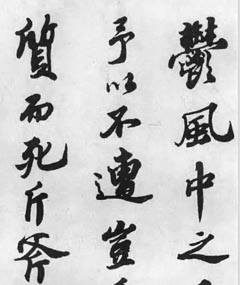 鬱風中之
予以不遭豈
質而死斤斧